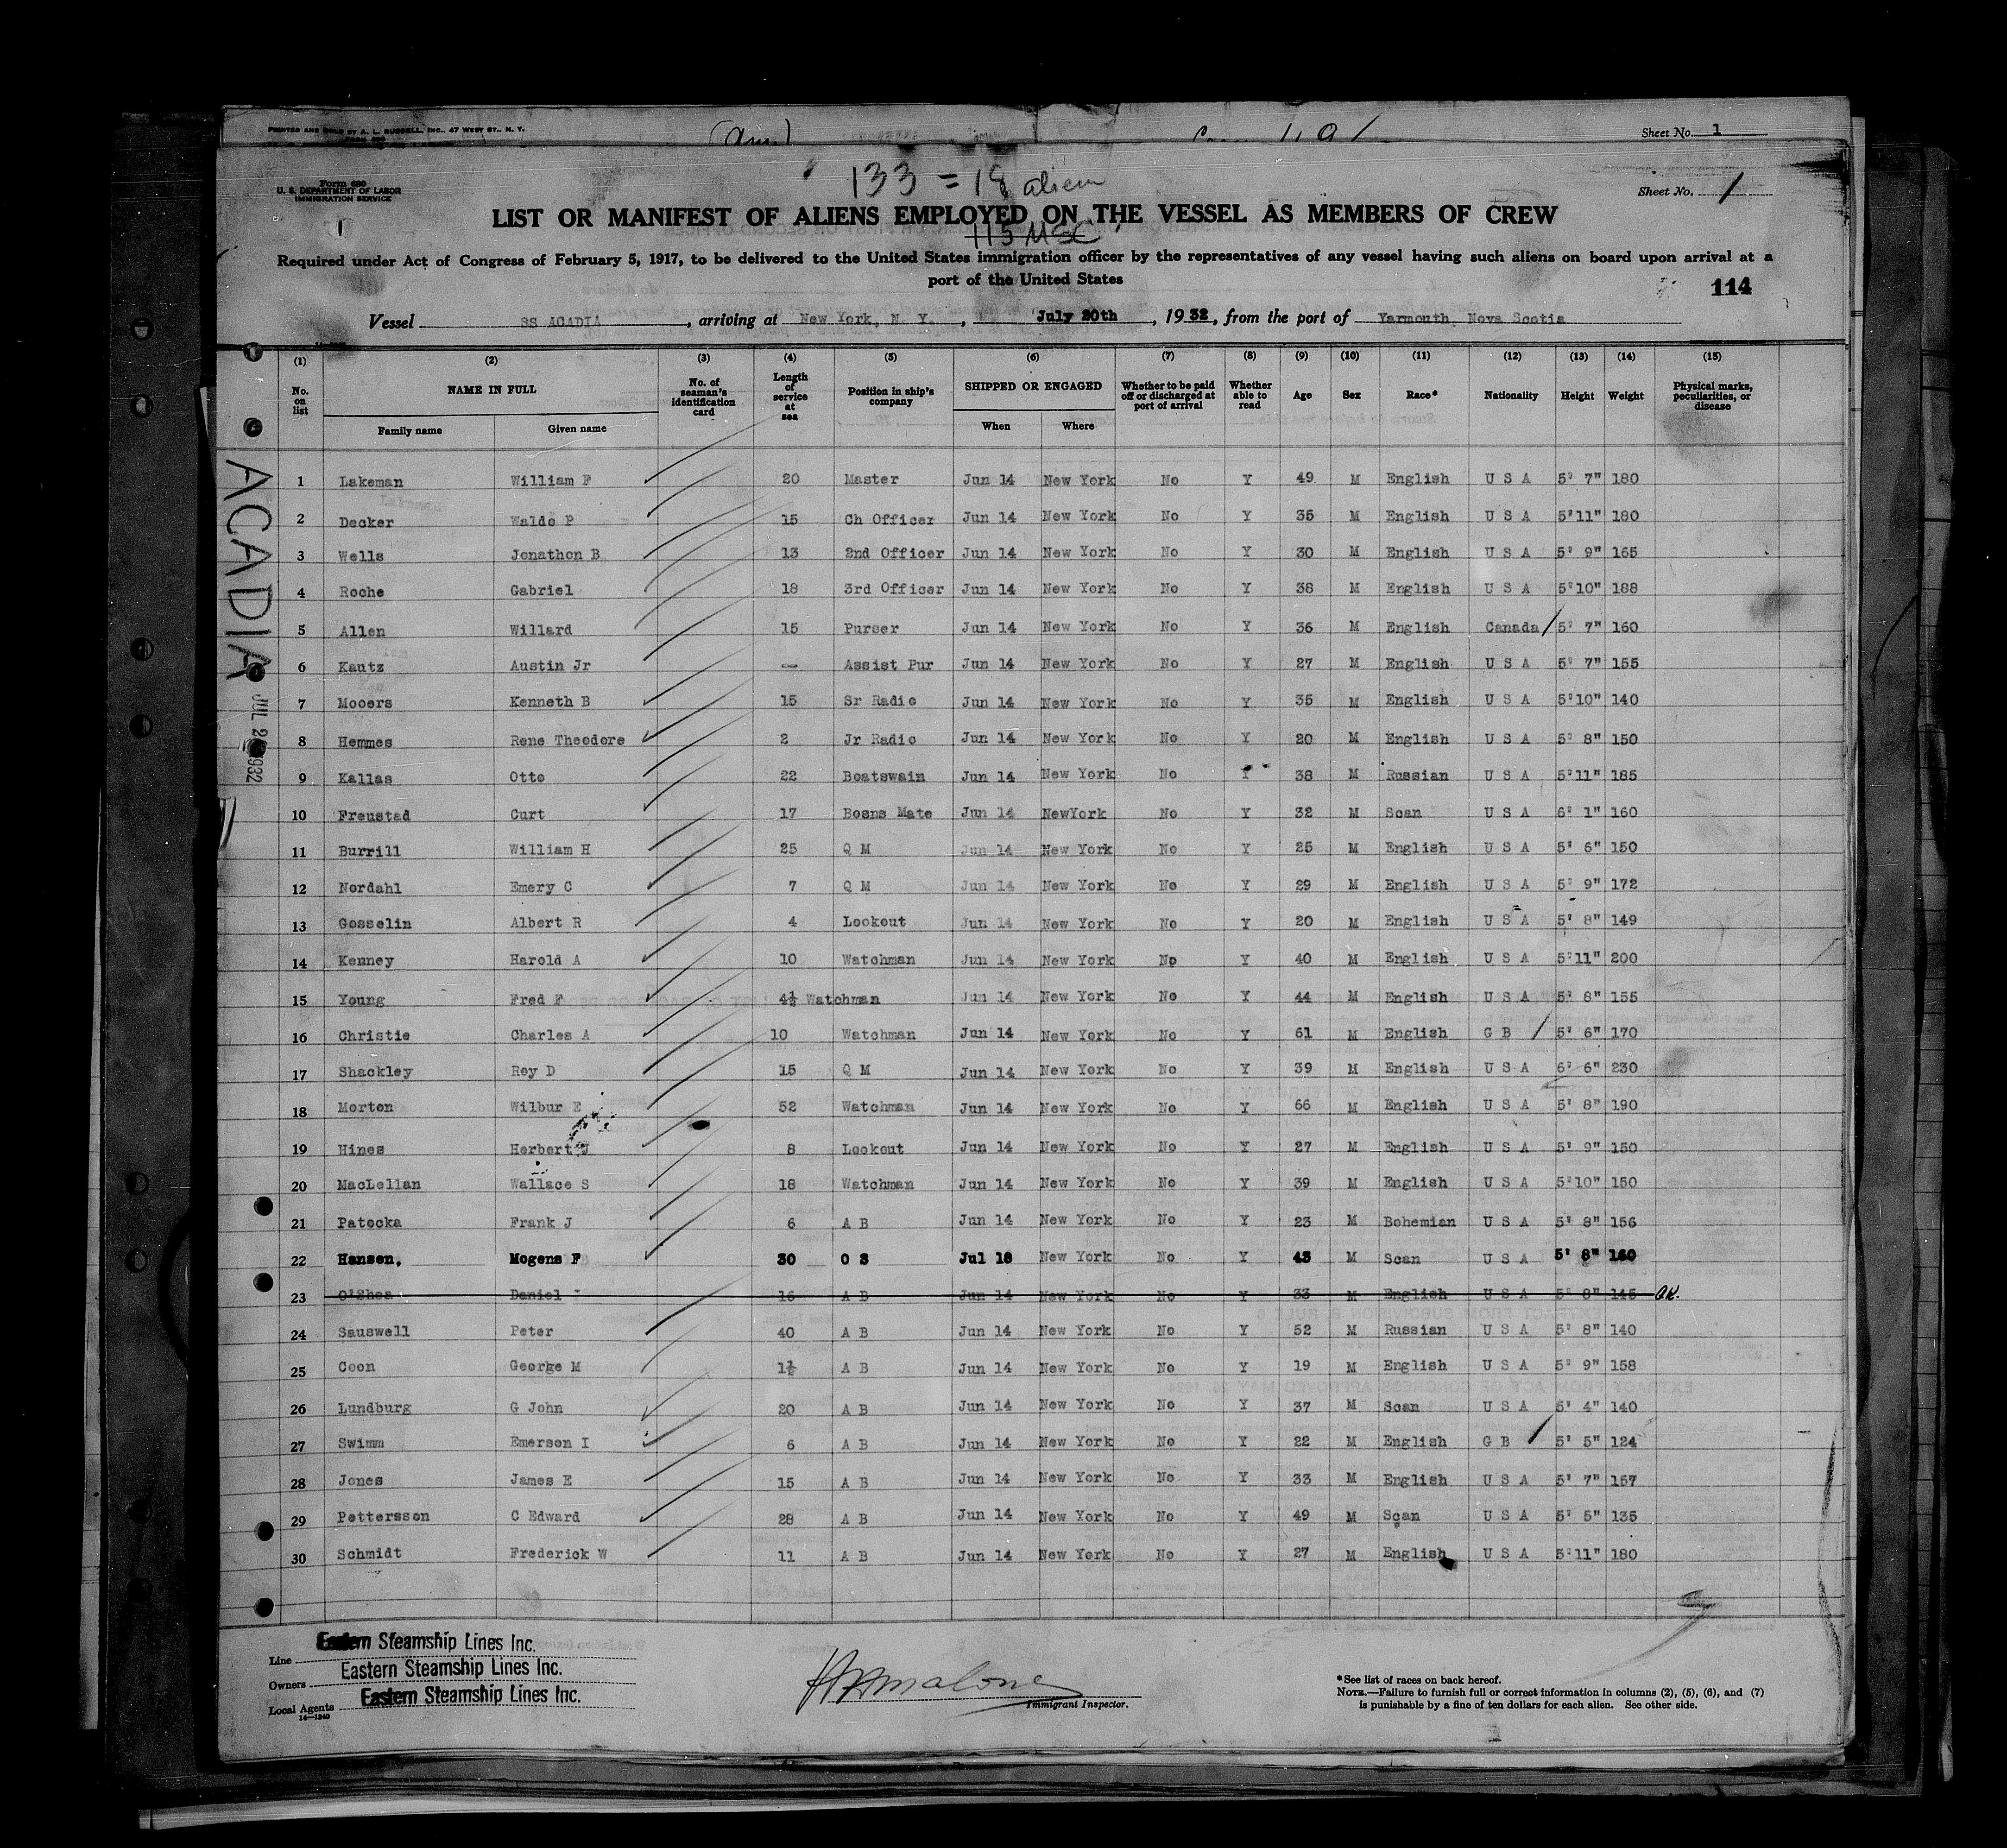 PRINTED AND SOLD BY A. L. RUSSELL, INC., 47 WEST ST., N. Y.
Sheet No. 1
133 = 18 alien
Form 680
U. S. DEPARTMENT OF LABOR
IMMIGRATION SERVICE
Sheet No. 1
LIST OR MANIFEST OF ALIENS EMPLOYED ON THE VESSEL AS MEMBERS OF CREW
115 USC
Required under Act of Congress of February 5, 1917, to be delivered to the United States immigration officer by the representatives of any vessel having such aliens on board upon arrival at a
port of the United States
114
Vessel SS ACADIA, arriving at New York, N. Y., July 20th, 1932, from the port of Yarmouth, Nova Scotia
(1) (2) (3) (4) (5) (6) (7) (8) (9) (10) (11) (12) (13) (14) (15)
No. on list NAME IN FULL No. of seaman's identification card Length of service at sea Position in ship's company SHIPPED OR ENGAGED Whether to be paid off or discharged at port of arrival Whether able to read Age Sex Race* Nationality Height Weight Physical marks, peculiarities, or disease
Family name Given name When Where
ACADIA
1 Lakeman William F 20 Master Jun 14 New York No Y 49 M English U S A 5' 7" 180
2 Decker Waldo P 15 Ch Officer Jun 14 New York No Y 35 M English U S A 5'11" 180
3 Wells Jonathon B 13 2nd Officer Jun 14 New York No Y 30 M English U S A 5' 9" 165
4 Roche Gabriel 18 3rd Officer Jun 14 New York No Y 38 M English U S A 5'10" 188
5 Allen Willard 15 Purser Jun 14 New York No Y 36 M English Canada / 5' 7" 160
6 Kautz Austin Jr -- Assist Pur Jun 14 New York No Y 27 M English U S A 5' 7" 155
7 Mooers Kenneth B 15 Sr Radio Jun 14 New York No Y 35 M English U S A 5'10" 140
8 Hemmes Rene Theodore 2 Jr Radio Jun 14 New York No Y 20 M English U S A 5' 8" 150
9 Kallas Otto 22 Boatswain Jun 14 New York No Y 38 M Russian U S A 5'11" 185
10 Freustad Curt 17 Bosns Mate Jun 14 NewYork No Y 32 M Scan U S A 6' 1" 160
11 Burrill William H 25 Q M Jun 14 New York No Y 25 M English U S A 5' 6" 150
12 Nordahl Emery C 7 Q M Jun 14 New York No Y 29 M English U S A 5' 9" 172
13 Gosselin Albert R 4 Lookout Jun 14 New York No Y 20 M English U S A 5' 8" 149
14 Kenney Harold A 10 Watchman Jun 14 New York No Y 40 M English U S A 5'11" 200
15 Young Fred F 4½ Watchman Jun 14 New York No Y 44 M English U S A 5' 8" 155
16 Christie Charles A 10 Watchman Jun 14 New York No Y 61 M English G B / 5' 6" 170
17 Shackley Roy D 15 Q M Jun 14 New York No Y 39 M English U S A 6' 6" 230
18 Morton Wilbur E 52 Watchman Jun 14 New York No Y 66 M English U S A 5' 8" 190
19 Hines Herbert W 8 Lookout Jun 14 New York No Y 27 M English U S A 5' 9" 150
20 MacLellan Wallace S 18 Watchman Jun 14 New York No Y 39 M English U S A 5'10" 150
21 Patocka Frank J 6 A B Jun 14 New York No Y 23 M Bohemian U S A 5' 8" 156
22 Hansen, Mogens F 30 O S Jul 18 New York No Y 43 M Scan U S A 5' 8" 160
23 O'Shea Daniel 16 A B Jun 14 New York No Y 33 M English U S A 5' 8" 145 OK.
24 Sauswell Peter 40 A B Jun 14 New York No Y 52 M Russian U S A 5' 8" 140
25 Coon George M 1½ A B Jun 14 New York No Y 19 M English U S A 5' 9" 158
26 Lundburg G John 20 A B Jun 14 New York No Y 37 M Scan U S A 5' 4" 140
27 Swimm Emerson I 6 A B Jun 14 New York No Y 22 M English G B / 5' 5" 124
28 Jones James E 15 A B Jun 14 New York No Y 33 M English U S A 5' 7" 157
29 Pettersson C Edward 28 A B Jun 14 New York No Y 49 M Scan U S A 5' 5" 135
30 Schmidt Frederick W 11 A B Jun 14 New York No Y 27 M English U S A 5'11" 180
Line Eastern Steamship Lines Inc.
Owners Eastern Steamship Lines Inc.
Local Agents Eastern Steamship Lines Inc.
14—1240
Immigrant Inspector.
*See list of races on back hereof.
NOTE.—Failure to furnish full or correct information in columns (2), (5), (6), and (7)
is punishable by a fine of ten dollars for each alien. See other side.